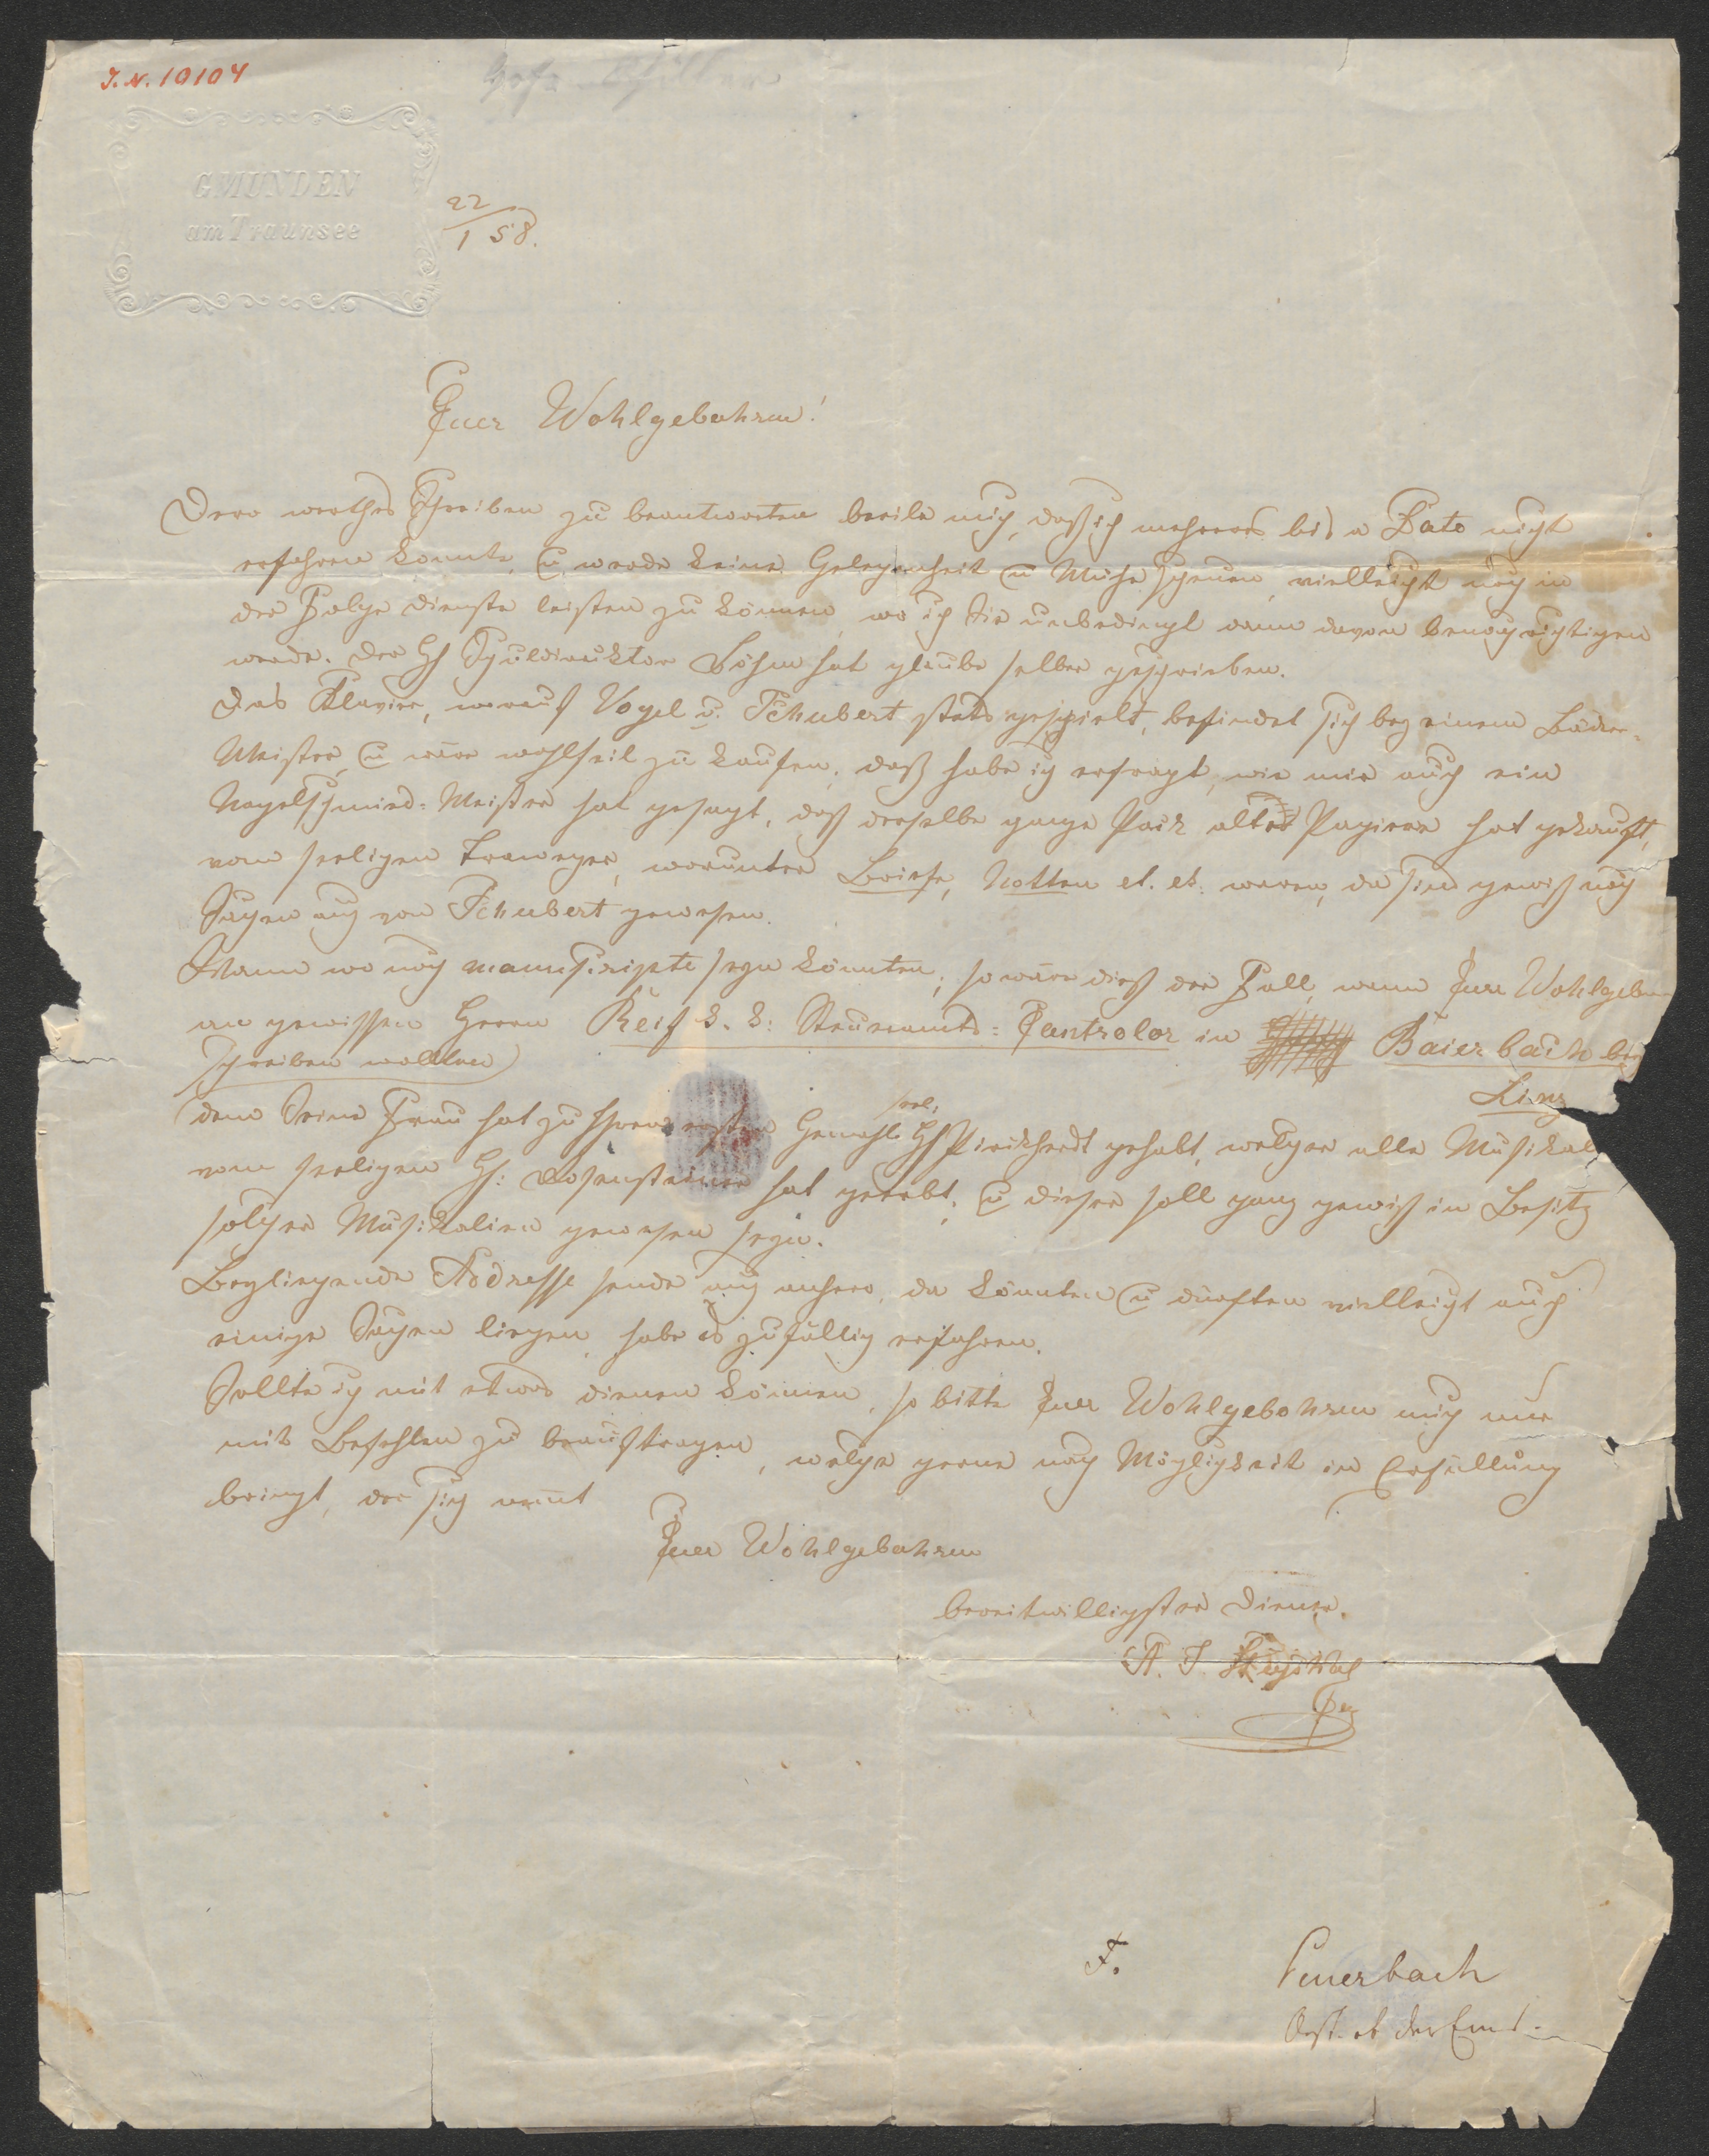 I. N. 10104
GMUNDEN
am Traunsee
22/1 58.
Euer Wohlgebohren!
Dero werthes Schreiben zu beantworten beeile mich, daß ich mehreres bis a Dato nicht
erfahren konnte, u werde keine Gelegenheit u Mühe scheuen, vielleicht noch in
der Folge Dienste leisten zu können, wo ich Sie unbedingt dann davon benachrichtigen
werde. Der H Schuldirektor Böhm hat glaube selber geschrieben.
Das Klavier, worauf Vogel u. Schubert stets gespielt, befindet sich bey einem
Meister, u wäre wohlfeil zu kaufen, daß habe ich erfragt, wie mir auch ein
Nagelschmied-Meister hat gesagt, daß derselbe ganze Pack alte Papiere hat gekauft,
vom seeligen Traweger, worunter Briefe, Notten et. et. waren, da sind gewiß noch
Sachen auch von Schubert gewesen.
Wann wo noch manuscripte seyn könnten, so wäre dieß der Fall, wenn Euer Wohlgeb
an gewissen Herrn Reif k. k: Steueramts-Controlor in Baierbach bey
schreiben wollten
Linz
denn Seine Frau hat zu Ihrem ersten Gemahl seel. H Pirikherdt gehabt, welcher alle Musikal
vom seeligen H: hat geerbt, u dieser soll ganz gewiß in Besitz
solcher Musikalien gewesen seyn.
Beyliegende Addresse sende auch anhero, da könnten u dürften vielleicht auch
einige Sachen liegen, habe es zufällig erfahren.
Sollte ich mit etwas dienen können, so bitte Euer Wohlgebohren mich nur
mit Befehlen zu beauftragen, welche gerne nach Möglichkeit in Erfüllung
bringt, der sich nennt
Euer Wohlgebohren
bereitwilligster Diener.
A. J.
F.
Peuerbach
Oest. ob der Enns